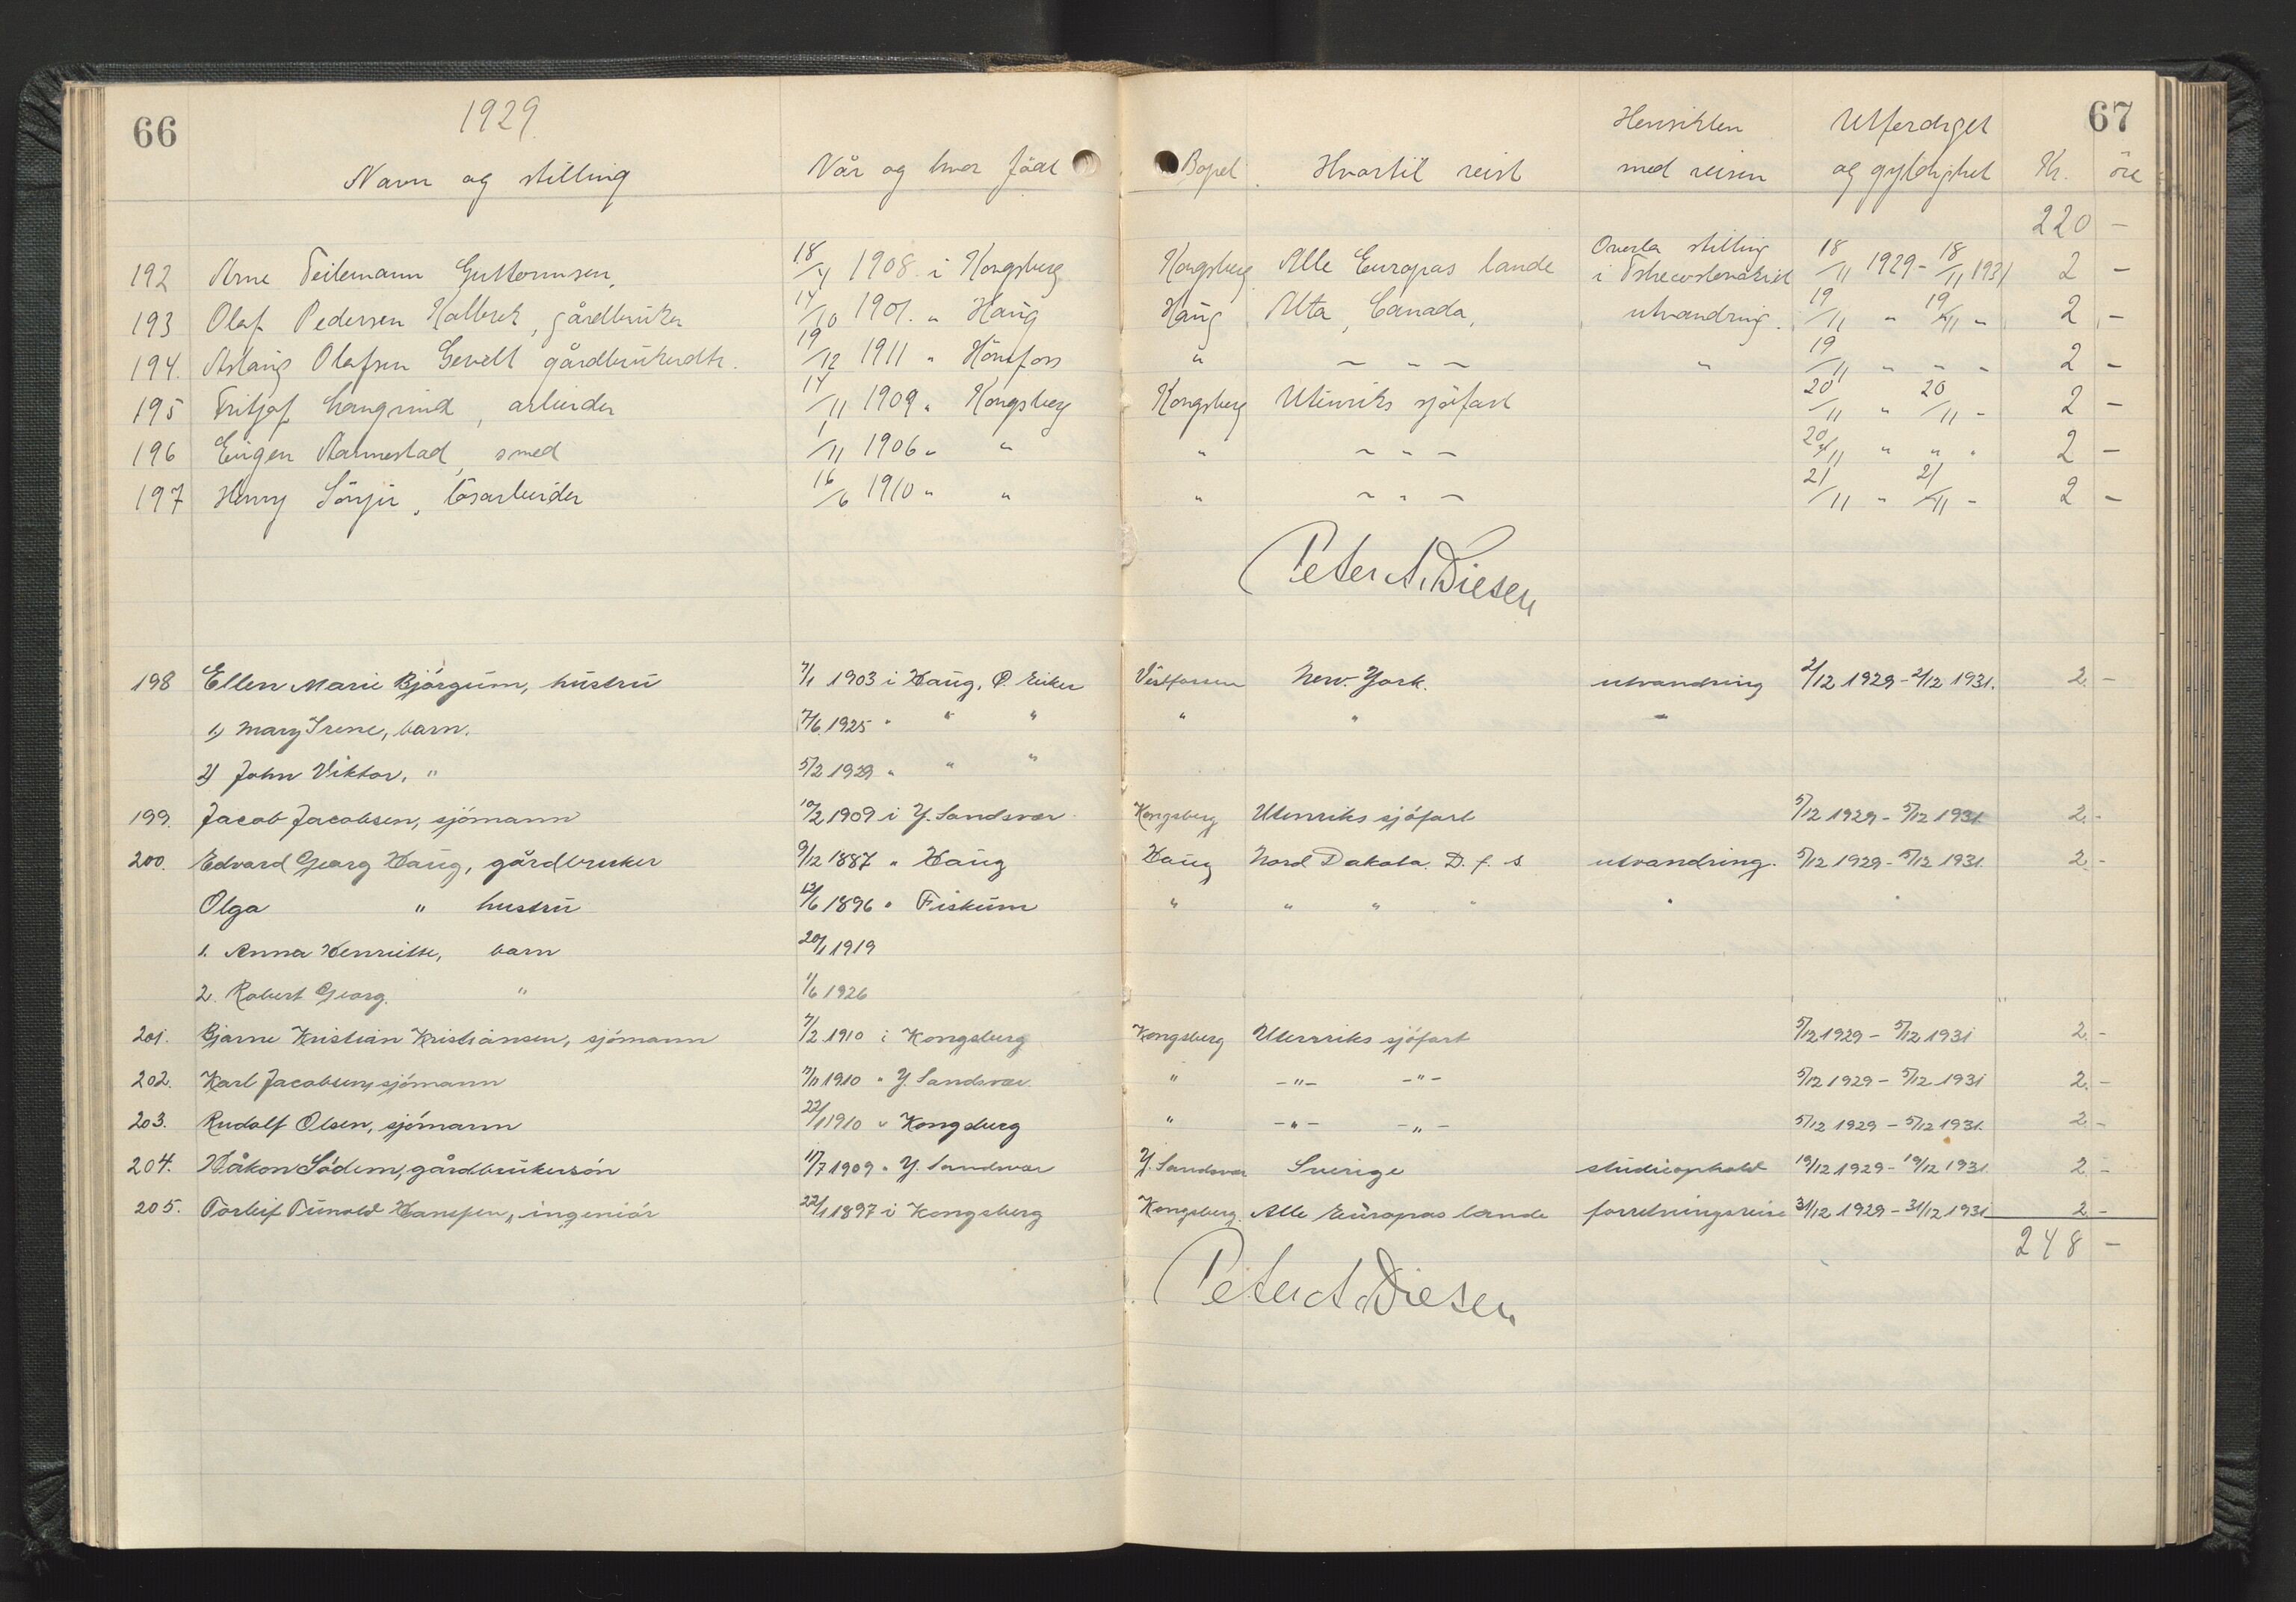 66 1929 67
Henrikten Utferdiget
Navn og stilling Når og hvor född Bopel Hvortil reist med reisen og gyldighet Kr. öre
220 -
Overta stilling
192 Arne Teilemann Guttormsen, 18/4 1908 i Kongsberg Kongsberg Alle Europas lande i 18/11 1929 - 18/11 1931 2 -
193 Olaf Pedersen, gårdbruker 14/10 1901. " Haug Haug Alta, Canada, utvandring. 19/11 " 19/11 " 2 -
194. Aslaug Olafsen gårdbrukerdtr. 19/12 1911 " Hönefoss " - " - " 19/11 " " " 2 -
195 Fritjof Langrind, arbeider 14/11 1909 " Kongsberg Kongsberg Utenriks sjöfart 20/11 " 20/11 - 2 -
196 Eugen Aarnestad, smed 1/11 1906 " " " - " - 20/11 " " " 2 -
197 Henry, lösarbeider 16/6 1910 " " " - " - 21/11 " 21/11 - 2 -
Peter A. Diesen
198 Ellen Marie Bjørgum, hustru 7/1 1903 i Haug, Ø. Eiker Vestfossen New-York. utvandring 2/12 1929 - 2/12 1931. 2. -
1) Mary Irene, barn. 7/6 1925 " " " " " "
2) John Viktor, " 5/2 1929 " " "
199. Jacob Jacobsen, sjömann 10/2 1909 i Y. Sandsvær Kongsberg Utenriks sjöfart 5/12 1929 - 5/12 1931 2. -
200. Edvard Georg Haug, gårdbruker 9/12 1887 " Haug Haug Nord Dakota. D. f. s utvandring. 5/12 1929 - 5/12 1931. 2 -
Olga " hustru 12/6 1896 " Fiskum " " " " " "
1. Anna Henriette, barn 20/1 1919
2. Robert Georg. " 1/6 1926
201. Bjarne Kristian Kristiansen, sjömann 7/2 1910 i Kongsberg Kongsberg Utenriks sjöfart 5/12 1929 - 5/12 1931 2. -
202. Karl Jacobsen, sjömann 7/11 1910 " Y. Sandsvær " -"- -"- 5/12 1929 - 5/12 1931 2. -
203. Rudolf Olsen, sjömann 22/1 1910 " Kongsberg " -"- -"- 5/12 1929 - 5/12 1931. 2 -
204. Håkon Södem, gårdbrukersön 11/7 1909 " Y. Sandsvær Y. Sandsvær Sverige studieophold 19/12 1929 - 19/12 1931 2 -
205. Torleif Hanssen, ingeniör 22/1 1897 i Kongsberg Kongsberg. Alle Europas lande forretningsreise 31/12 1929 - 31/12 1931 2 -
248 -
Peter A. Diesen